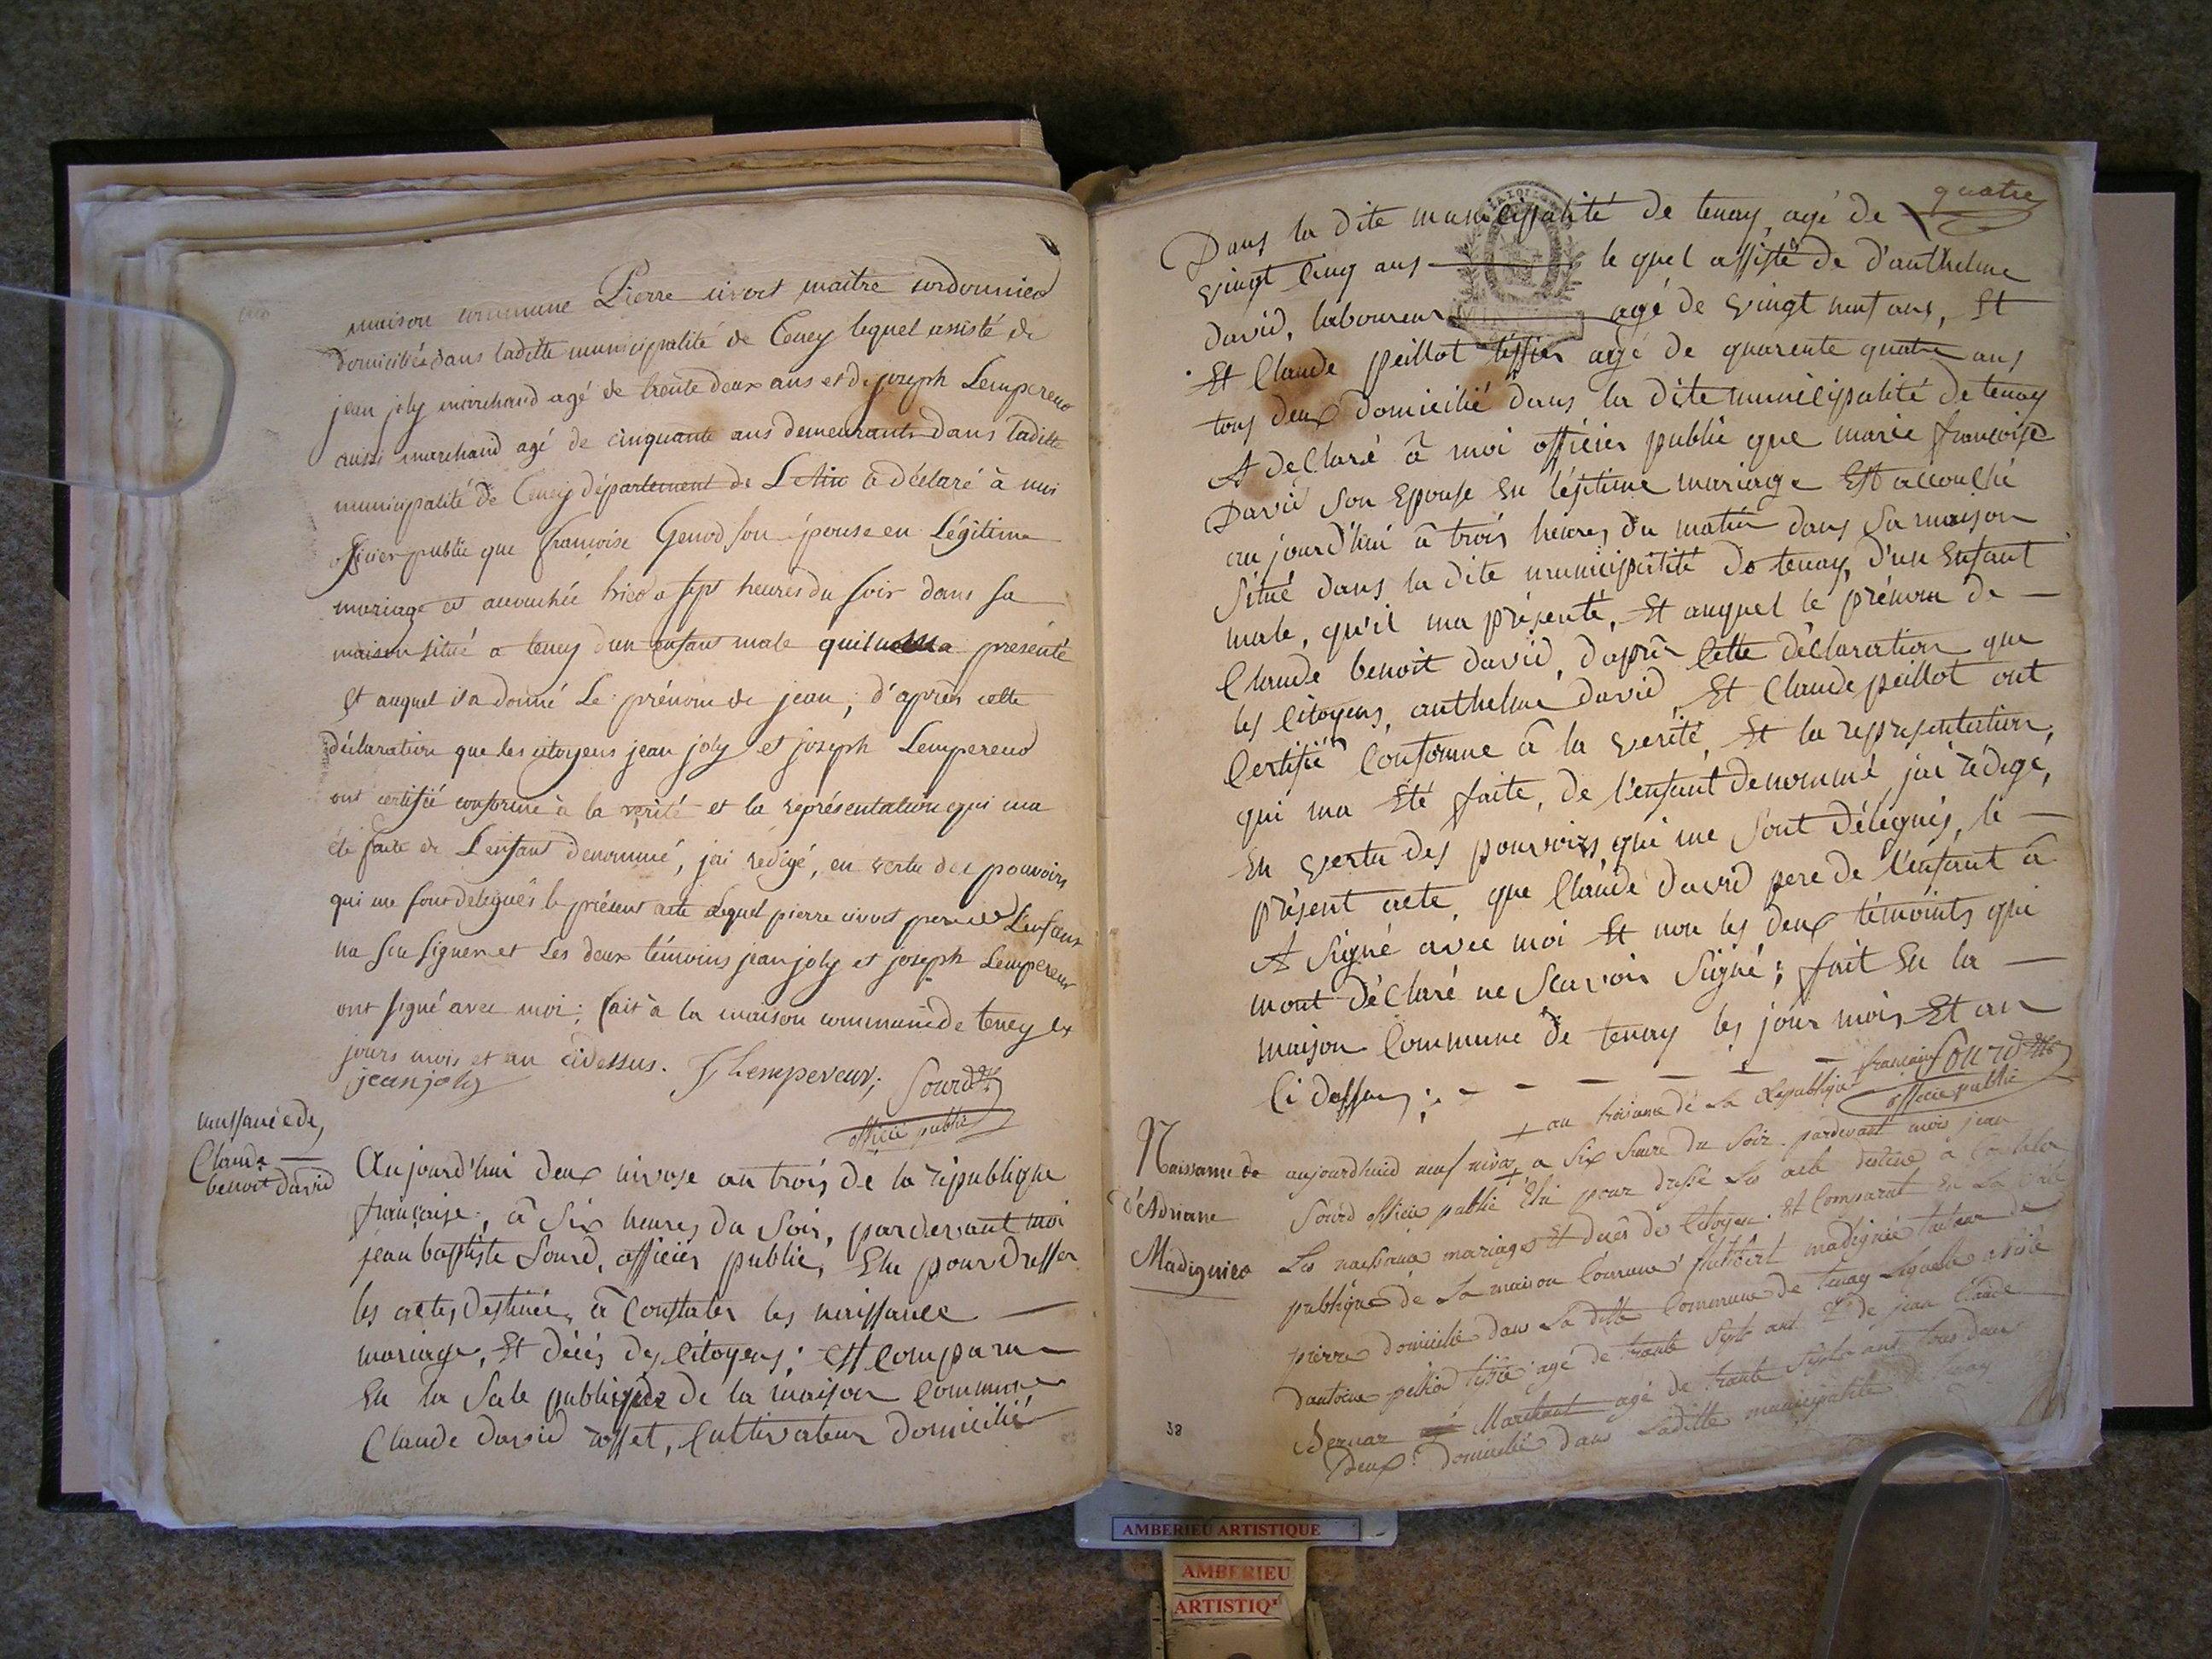 maison commune Pierre maitre cordonnier
domicilié dans ladite municipalité de Teney lequel assisté de
jean joly marchand agé de trente deux ans et de joseph Lempereur
aussi marchand agé de cinquante ans demeurants dans ladite
municipalité de Teney département de L'Ain a déclaré à moi
officier public que françoise Genod son épouse en Légitime
mariage est accouchée hier a sept heures du soir dans sa
maison situé a teney d'un enfant male présenté
Et auquel il a donné Le prénom de jean, d'après cette
déclaration que les citoyens jean joly et joseph Lempereur
ont certifié conforme à la verité et la représentation qui ma
été faite de L'enfant denommé, jai redigé, en vertu des pouvoirs
qui me sont delegués le présent acte lequel pierre pere de L'enfant
na seu signer et Les deux témoins jean joly et joseph Lempereur
ont signé avec moi; fait à la maison commune de teney les
jours mois et an cidessus. J Lempereur;
jean joly Sourd
officié public
naissance de,
Claude
benoit david
Aujourd'hui deux nivose an trois de la république
française, â Six heures du Soir, pardevant moi
jean baptiste Sourd, officier public, Elu pour dresser
les actes destinées â Constater les naissance
mariage, Et décès des Citoyens; est Comparu
En la Sale publique de la maison Commune
Claude david Cultivateur domicilié
quatre
Dans la dite municipalité de tenay, agé de
vingt cinq ans le quel assisté de d'anthelme
david, laboureur agé de vingt neuf ans, Et
Et Claude peillot tissier agé de quarente quatre ans
tous deux domicilié dans la dite municipalité de tenay
A declaré â moi officier public que marie françoise
David son Epouse En légitime mariage Est accouché
au jourd'hui â trois heures du matin dans sa maison
Situé dans la dite municipalité de tenay, d'un Enfant
male, qu'il ma présenté, Et auquel le prénom de
Claude benoit david, d'après Cette déclaration que
les Citoyens, anthelme david, Et Claude peillot ont
Certifié Conforme â la verité, Et la representation,
qui ma Eté faite, de l'enfant denommé, jai rédigé,
En vertu des pouvoirs, qui me Sont délégués, le
présent acte, que Claude david pere de l'enfant â
A Signé avec moi Et non les deux témoints qui
mont déclaré ne Scavoir Signé; fait En la
maison Commune de tenay les jour mois Et an
Ci dessus;
Sourd
officié public
an troisieme de La Republique francaise
Naissance de
d'Adriane
Madignier
aujourdhuid neuf nivoz a Six heure du Soir pardevant mois jean
Sourd officié public Elu pour dressé Les acte destiné a
Les naissance mariages Et decès des Citoyen. Et Comparut En La Sale
publique de La maison Commune madignié tailleur de
pierre domicilié dans La ditte Commune de tenay Lequelle assisté
dantoine agé de trante Sept ant Et de jean Claude
Bernar Marchant agé de trante Sept ant tous deux
Deux domicilié dans Laditte municipalité
38
AMBERIEU ARTISTIQUE
AMBERIEU
ARTISTIQ